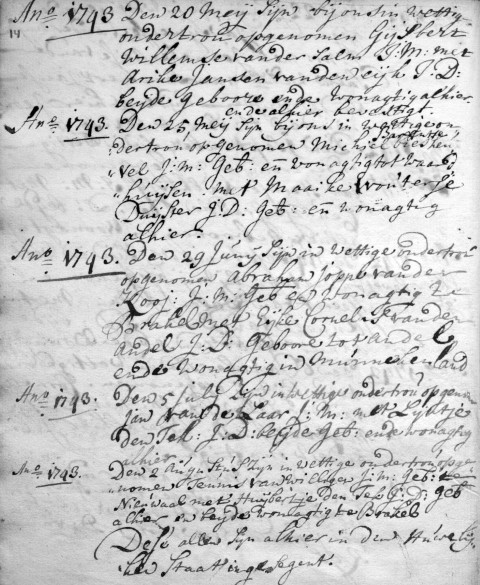 Ano 1743 Den 20 Meij Sijn bij ons in wettig
14 ondertrou opgenomen Gijsbert
Willemse vander Salm J:M: met
Arike Jansen vanden eijk J:D:
beijde Geboore ende wonagtig alhier
ende alhier bevestigt
Ano 1743. Den 25 Meij Sijn bij ons in wettige on
dertrou opgenomen Michiel
vel J:m: Geb: en wonagtig tot
huijsen, met Maaike Wouterse
Duijster J:D: Geb: en wonagtig
alhier.
Ano 1743. Den 29 Junij Sijn in wettige ondertrou
opgenomen Abraham Joppe vander
Kooij J:M: Geb en wonagtig te
Brakel met Eijke Cornelis vanden
Andel J:D: Geboore tot Andel
ende wonagtig in Munnekenland
Ano 1743. Den 5 July Sijn in wettige ondertrou opgeno
Jan van de Laar J:M: met Lijntje
den Tek: J:D: beijde Geb: ende wonagtig
alhier
Ano 1743. Den 2 Augustus Sijn in wettige ondertrou opge
nomen Teunis van Willigen J:m: Geb: te
Nieuwaal met Huijbertje den Tek J:D: Geb
alhier en beijde wonagtig te Brakel
Dese alle Sijn alhier in den Huwelij
ken Staat ingesegent.